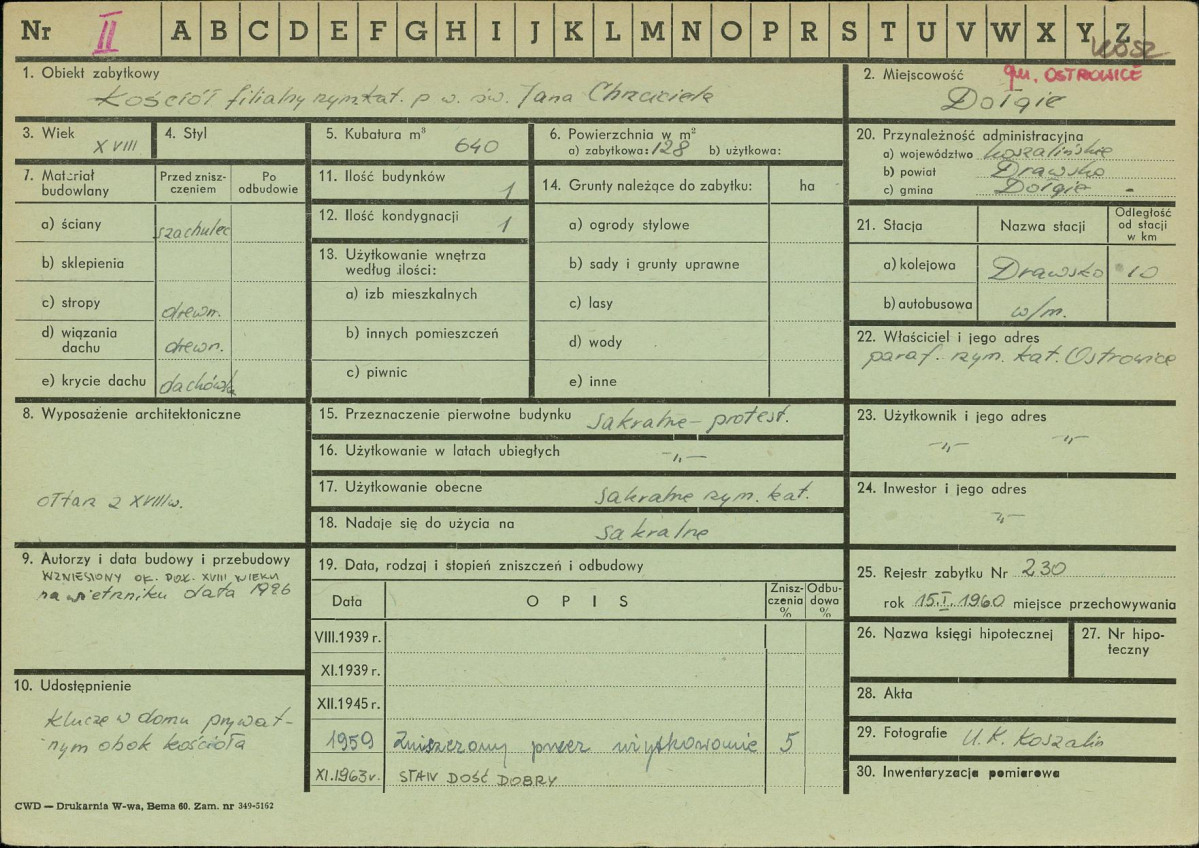 Nr II A B C D E F G H I J K L M N O P R S T U V W X Y Z
KOSZ
1. Obiekt zabytkowy
Kościół filialny rzym. kat. p. w. św. Jana Chrzciciela
2. Miejscowość
gm. OSTROWICE
Dołgie
3. Wiek
XVIII
4. Styl
5. Kubatura m³
640
6. Powierzchnia w m²
a) zabytkowa: 128 b) użytkowa:
20. Przynależność administracyjna
a) województwo koszalińskie
b) powiat Drawsko
c) gmina Dołgie -
7. Materiał budowlany
Przed zniszczeniem
Po odbudowie
a) ściany szachulec
b) sklepienia
c) stropy drewn.
d) wiązania dachu drewn.
e) krycie dachu dachówka
11. Ilość budynków 1
12. Ilość kondygnacji 1
13. Użytkowanie wnętrza według ilości:
a) izb mieszkalnych
b) innych pomieszczeń
c) piwnic
14. Grunty należące do zabytku: ha
a) ogrody stylowe
b) sady i grunty uprawne
c) lasy
d) wody
e) inne
21. Stacja Nazwa stacji Odległość od stacji w km
a) kolejowa Drawsko 10
b) autobusowa w/m.
22. Właściciel i jego adres
paraf. rzym. kat. Ostrowice
8. Wyposażenie architektoniczne
ołtarz z XVIII w.
15. Przeznaczenie pierwotne budynku sakralne - protest.
16. Użytkowanie w latach ubiegłych -„-
17. Użytkowanie obecne sakralne rzym. kat.
18. Nadaje się do użycia na sakralne
23. Użytkownik i jego adres
-„- -„-
24. Inwestor i jego adres
-„-
9. Autorzy i data budowy i przebudowy
WZNIESIONY OK. POŁ. XVIII WIEKU
na wietrzniku data 1996
19. Data, rodzaj i stopień zniszczeń i odbudowy
Data OPIS Zniszczenia % Odbudowa %
VIII.1939 r.
XI.1939 r.
XII.1945 r.
1959 Zniszczony przez użytkowanie 5
XI.1963 r. STAN DOŚĆ DOBRY
25. Rejestr zabytku Nr 230
rok 15.I.1960 miejsce przechowywania
26. Nazwa księgi hipotecznej
27. Nr hipoteczny
10. Udostępnienie
klucze w domu prywat-
nym obok kościoła
28. Akta
29. Fotografie U.K. Koszalin
30. Inwentaryzacja pomiarowa
CWD — Drukarnia W-wa, Bema 60. Zam. nr 349-5162